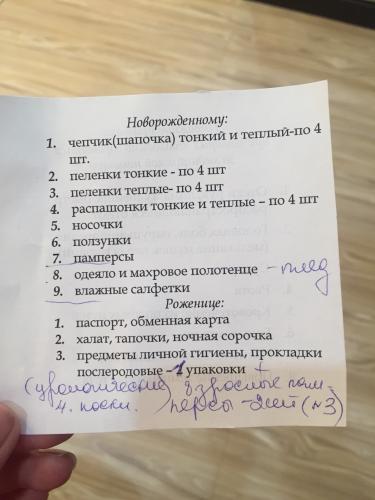 Новорожденному:
1. чепчик(шапочка) тонкий и теплый-по 4
шт.
2. пеленки тонкие - по 4 шт
3. пеленки теплые- по 4 шт
4. распашонки тонкие и теплые – по 4 шт
5. носочки
6. ползунки
7. памперсы
8. одеяло и махровое полотенце - плед
9. влажные салфетки
Роженице:
1. паспорт, обменная карта
2. халат, тапочки, ночная сорочка
3. предметы личной гигиены, прокладки
послеродовые -1 упаковки +
(урологические) взрослые пам-
4. носки. персы - (№3)